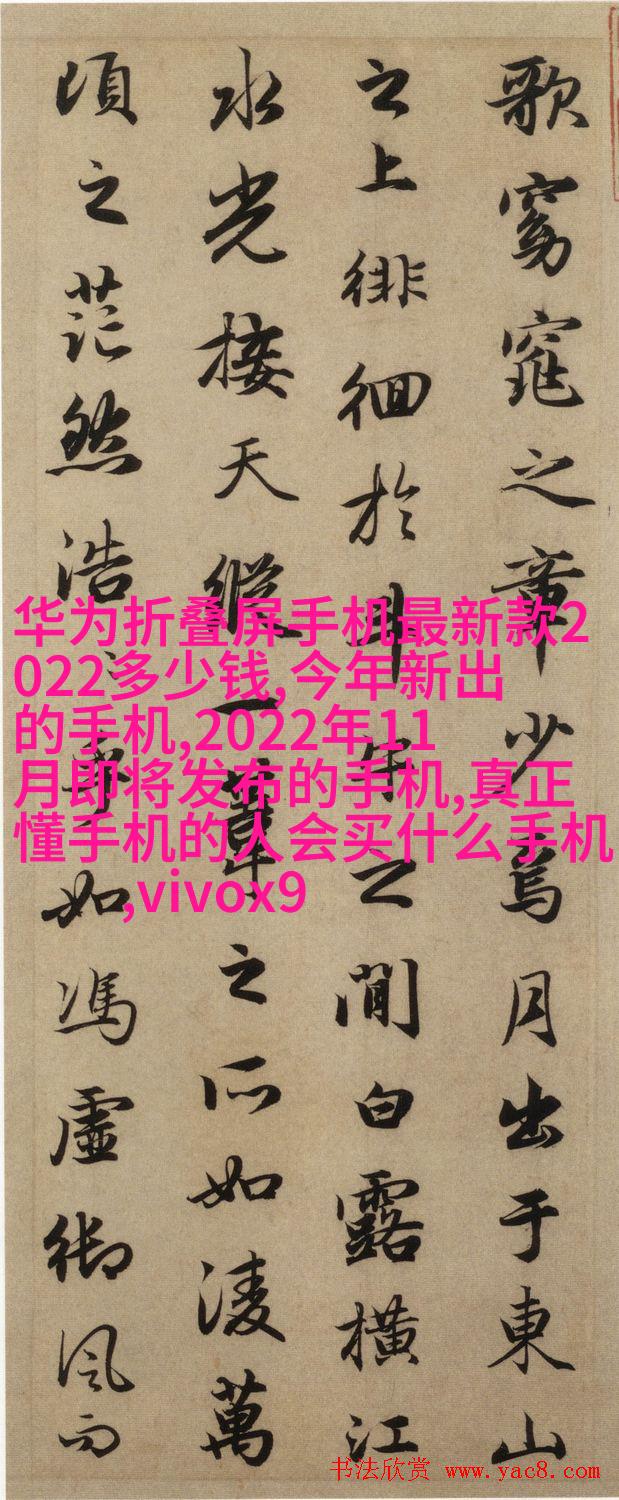 歌窈窕之章少焉月出于東山
之上徘徊於斗牛之間白露橫江
水光接天縱一葦之所如淩萬
頃之茫然浩〻乎如馮虛御風而
华为折叠屏手机最新款2
022多少钱,今年新出
的手机,2022年11
月即将发布的手机,真正
懂手机的人会买什么手机
,vivox9
书法欣赏 www.yac8.com